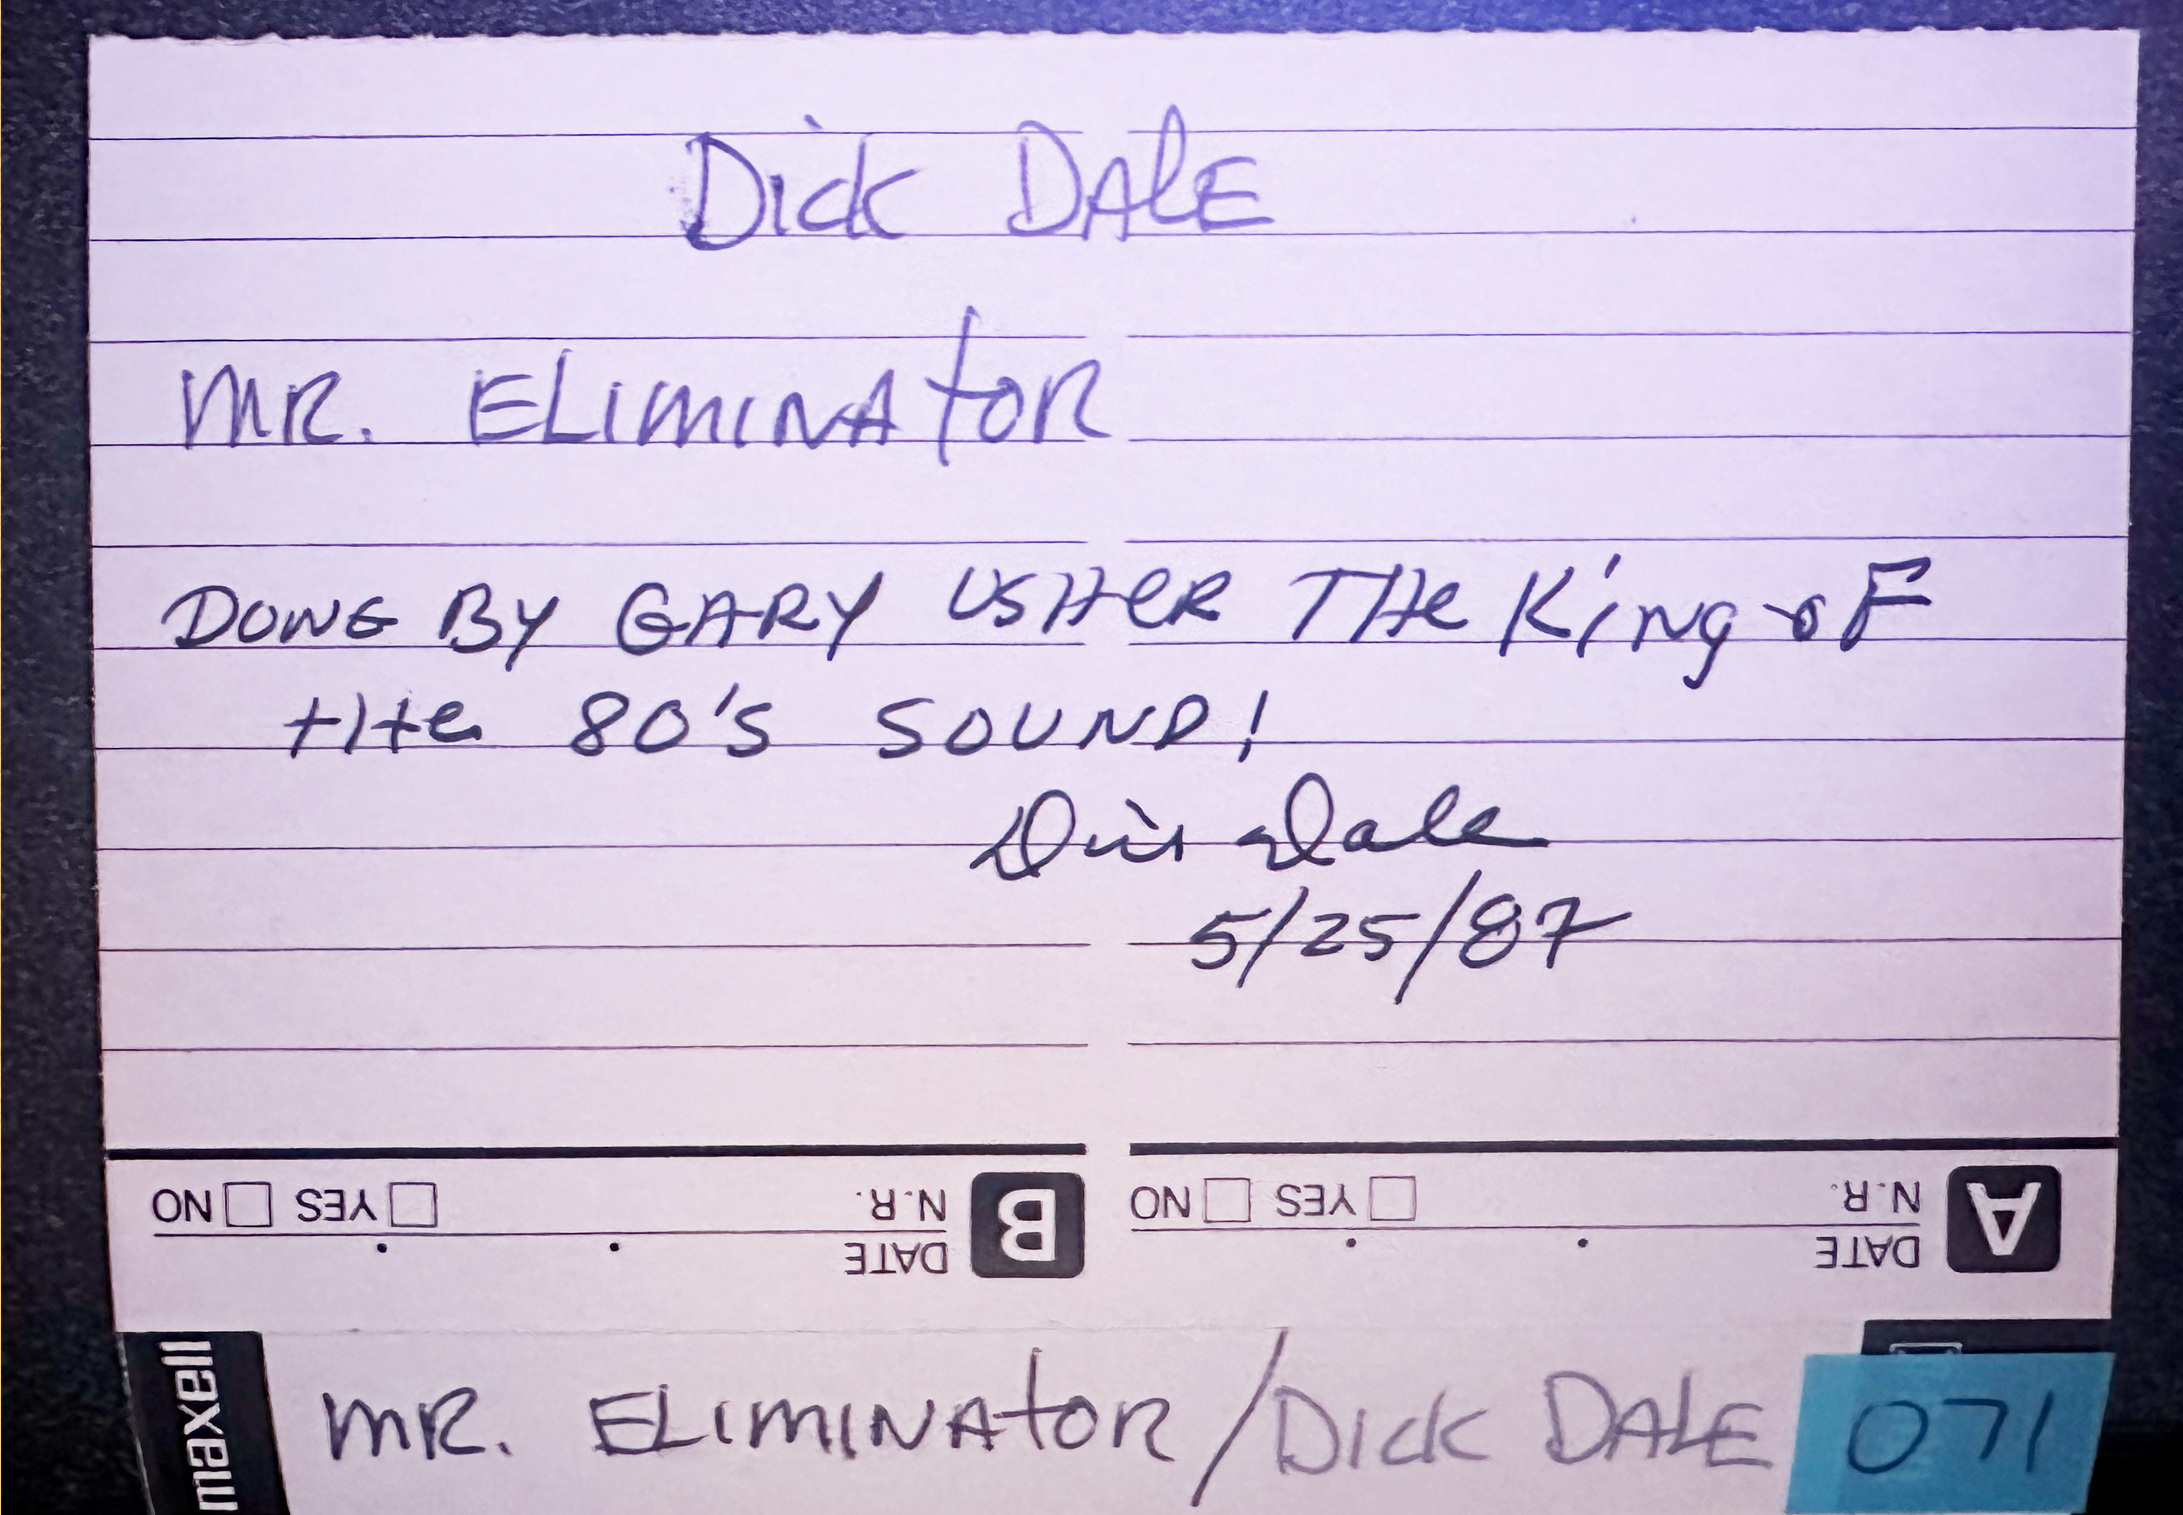 Dick DALE
MR. ELIMINATOR
DONE BY GARY USHER THE KiNg oF
tHe 80's SOUND!
Dick Dale
5/25/87
NO YES N.R. B NO YES N.R. A
DATE DATE
maxell MR. ELIMINATOR/DICK DALE 071